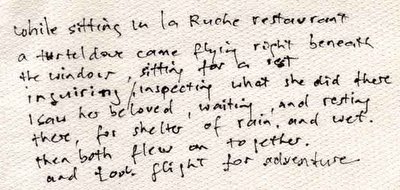 while sitting in la Ruche restaurant
a turteldove came flying right beneath
the window, sitting for a rest
inquiring / inspecting what she did there
I saw her beloved, waiting, and resting
there, for shelter of rain, and wet.
then both flew on together.
and took flight for adventure